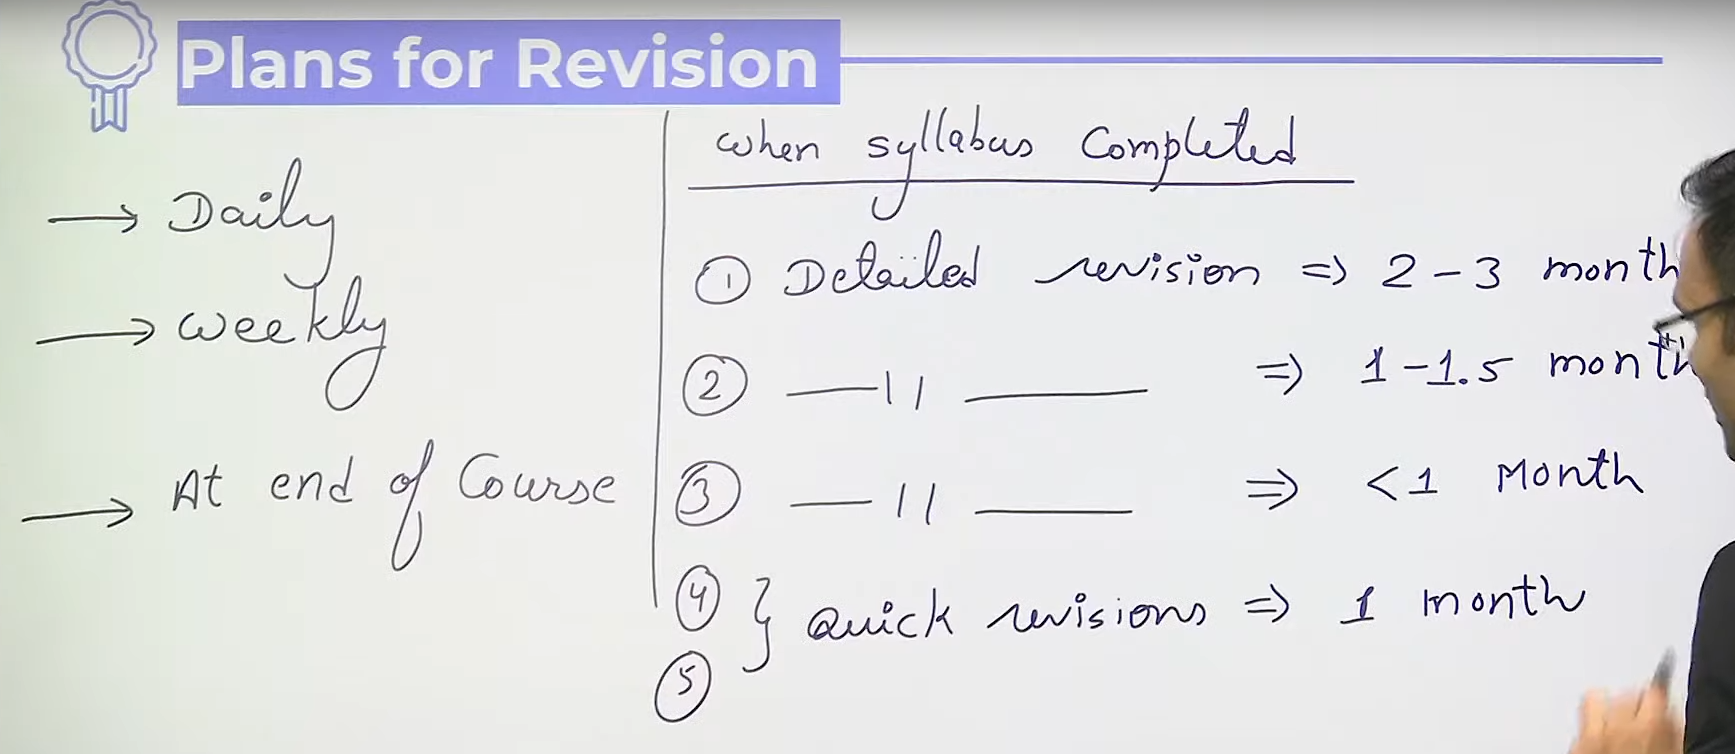 Plans for Revision
→ Daily
→ weekly
→ At end of Course
when syllabus Completed
① Detailed revision => 2-3 month
② —11— => 1-1.5 month
③ —11— => <1 Month
④ } Quick revisions => 1 month
⑤